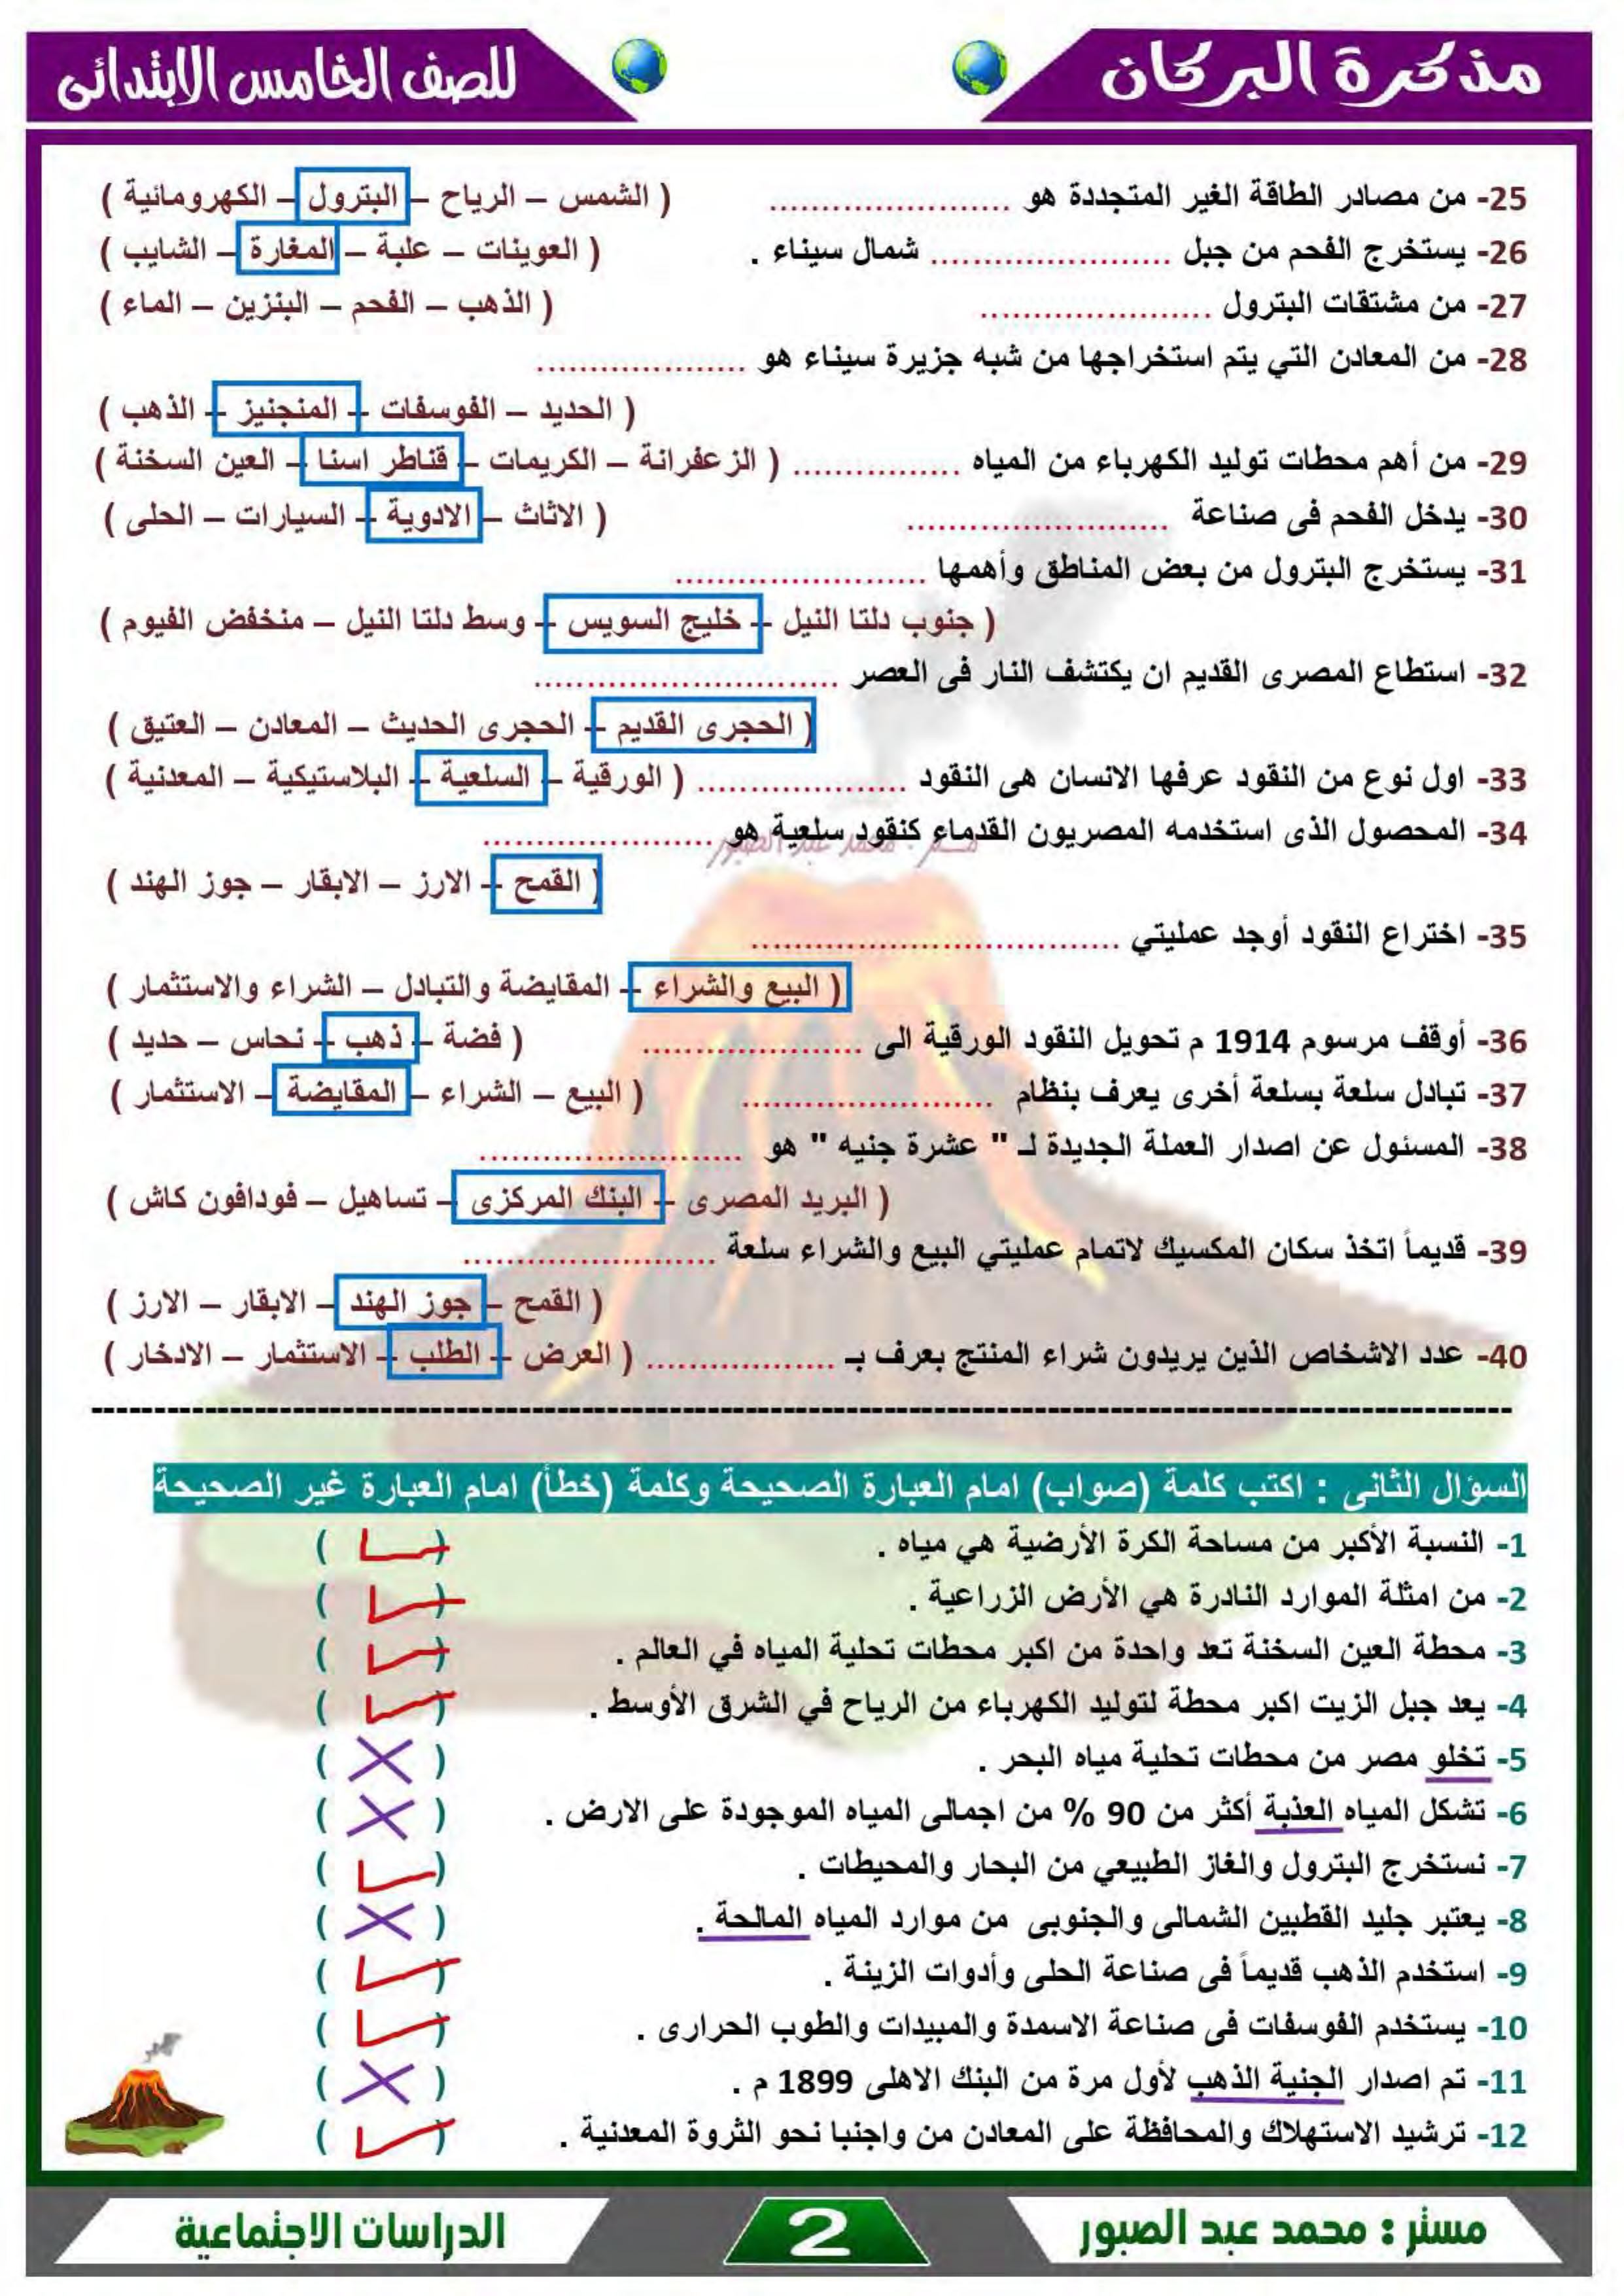 مذكرة البركان
للصف الخامس الابتدائى
25- من مصادر الطاقة الغير المتجددة هو ...................... ( الشمس – الرياح – البترول – الكهرومائية )
26- يستخرج الفحم من جبل ...................... شمال سيناء . ( العوينات – علبة – المغارة – الشايب )
27- من مشتقات البترول ...................... ( الذهب – الفحم – البنزين – الماء )
28- من المعادن التي يتم استخراجها من شبه جزيرة سيناء هو ....................
( الحديد – الفوسفات – المنجنيز – الذهب )
29- من أهم محطات توليد الكهرباء من المياه ................ ( الزعفرانة – الكريمات – قناطر اسنا – العين السخنة )
30- يدخل الفحم فى صناعة ......................... ( الاثاث – الادوية – السيارات – الحلى )
31- يستخرج البترول من بعض المناطق وأهمها ........................
( جنوب دلتا النيل – خليج السويس – وسط دلتا النيل – منخفض الفيوم )
32- استطاع المصرى القديم ان يكتشف النار فى العصر .............................
( الحجرى القديم – الحجرى الحديث – المعادن – العتيق )
33- اول نوع من النقود عرفها الانسان هى النقود .................... ( الورقية – السلعية – البلاستيكية – المعدنية )
34- المحصول الذى استخدمه المصريون القدماء كنقود سلعية هو ......................
مستر : محمد عبد الصبور
( القمح – الارز – الابقار – جوز الهند )
35- اختراع النقود أوجد عمليتي ...................................
( البيع والشراء – المقايضة والتبادل – الشراء والاستثمار )
36- أوقف مرسوم 1914 م تحويل النقود الورقية الى ..................... ( فضة – ذهب – نحاس – حديد )
37- تبادل سلعة بسلعة أخرى يعرف بنظام ........................ ( البيع – الشراء – المقايضة – الاستثمار )
38- المسئول عن اصدار العملة الجديدة لـ " عشرة جنيه " هو .........................
( البريد المصرى – البنك المركزى – تساهيل – فودافون كاش )
39- قديماً اتخذ سكان المكسيك لاتمام عمليتي البيع والشراء سلعة ........................
( القمح – جوز الهند – الابقار – الارز )
40- عدد الاشخاص الذين يريدون شراء المنتج يعرف بـ .................. ( العرض – الطلب – الاستثمار – الادخار )
السؤال الثانى : اكتب كلمة (صواب) امام العبارة الصحيحة وكلمة (خطأ) امام العبارة غير الصحيحة
1- النسبة الأكبر من مساحة الكرة الأرضية هي مياه . ( ✓ )
2- من امثلة الموارد النادرة هي الأرض الزراعية . ( ✓ )
3- محطة العين السخنة تعد واحدة من اكبر محطات تحلية المياه في العالم . ( ✓ )
4- يعد جبل الزيت اكبر محطة لتوليد الكهرباء من الرياح في الشرق الأوسط . ( ✓ )
5- تخلو مصر من محطات تحلية مياه البحر . ( ✗ )
6- تشكل المياه العذبة أكثر من 90 % من اجمالى المياه الموجودة على الارض . ( ✗ )
7- نستخرج البترول والغاز الطبيعي من البحار والمحيطات . ( ✓ )
8- يعتبر جليد القطبين الشمالى والجنوبى من موارد المياه المالحة . ( ✗ )
9- استخدم الذهب قديماً فى صناعة الحلى وأدوات الزينة . ( ✓ )
10- يستخدم الفوسفات فى صناعة الاسمدة والمبيدات والطوب الحرارى . ( ✓ )
11- تم اصدار الجنية الذهب لأول مرة من البنك الاهلى 1899 م . ( ✗ )
12- ترشيد الاستهلاك والمحافظة على المعادن من واجنبا نحو الثروة المعدنية . ( ✓ )
مستر : محمد عبد الصبور
2
الدراسات الاجتماعية